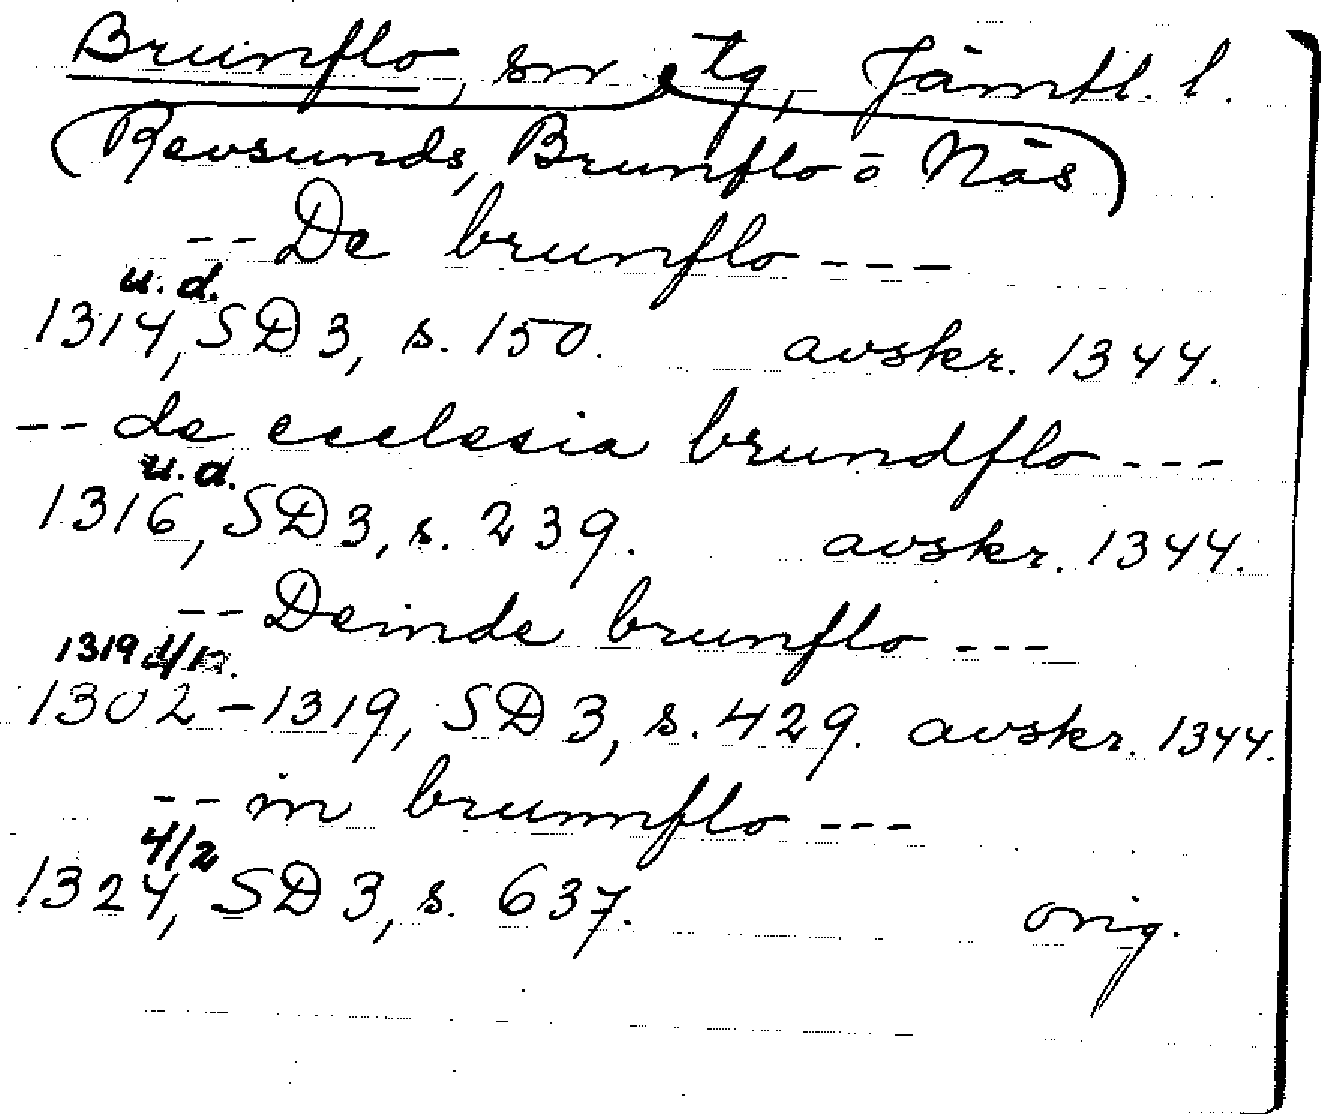 Brunflo, sn o tg, Jämtl. l.
(Revsunds, Brunflo o Näs)
-- De brunflo ---
u. d.
1314, SD 3, s. 150. avskr. 1344.
-- de ecclesia brundflo ---
u. d.
1316, SD 3, s. 239. avskr. 1344.
-- Deinde brunflo ---
1319
1302-1319, SD 3, s. 429. avskr. 1344.
-- in brunnflo ---
4/2
1324, SD 3, s. 637. orig.